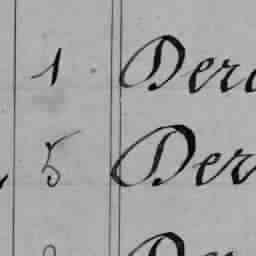 1 Der
5 Der